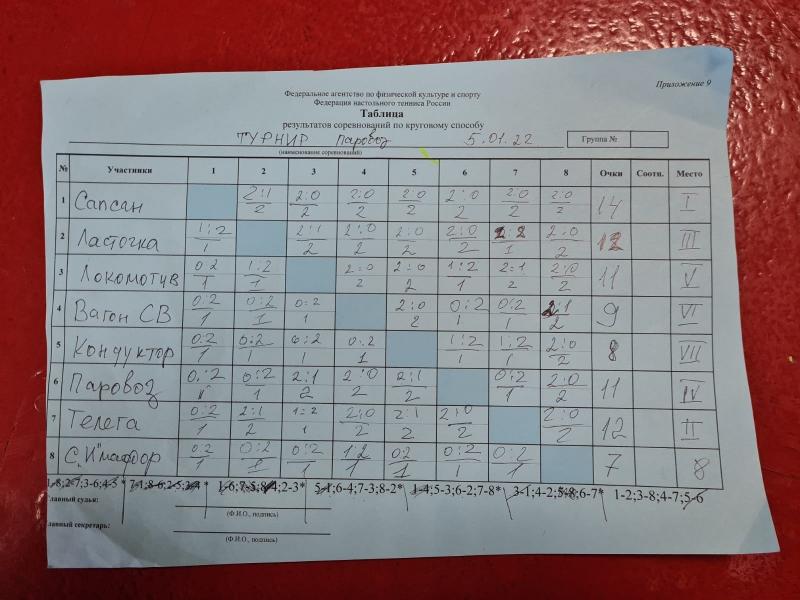 Приложение 9
Федеральное агентство по физической культуре и спорту
Федерация настольного тенниса России
Таблица
результатов соревнований по круговому способу
ТУРНИР Паровоз 5.01.22 Группа №
(наименование соревнований)
№ Участники 1 2 3 4 5 6 7 8 Очки Соотн. Место
1 Сапсан 2:1/2 2:0/2 2:0/2 2:0/2 2:0/2 2:0/2 2:0/2 14 I
2 Ласточка 1:2/1 2:1/2 2:0/2 2:0/2 2:0/2 1:2/1 2:0/2 12 III
3 Локомотив 0:2/1 1:2/1 2:0/2 2:0/2 1:2/1 2:1/2 2:0/2 11 V
4 Вагон СВ 0:2/1 0:2/1 0:2/1 2:0/2 0:2/1 0:2/1 2:1/2 9 VI
5 Кондуктор 0:2/1 0:2/1 0:2/1 0:2/1 1:2/1 1:2/1 2:0/2 8 VII
6 Паровоз 0:2/1 0:2/1 2:1/2 2:0/2 2:1/2 0:2/1 2:0/2 11 IV
7 Телега 0:2/1 2:1/2 1:2/1 2:0/2 2:1/2 2:0/2 2:0/2 12 II
8 0:2/1 0:2/1 0:2/1 1:2/1 0:2/1 0:2/1 0:2/1 7 8
1-8;2-7;3-6;4-5* 7-1;8-6;2-5;3-4* 1-6;7-5;8-4;2-3* 5-1;6-4;7-3;8-2* 1-4;5-3;6-2;7-8* 3-1;4-2;5-8;6-7* 1-2;3-8;4-7;5-6
Главный судья:
(Ф.И.О., подпись)
Главный секретарь:
(Ф.И.О., подпись)